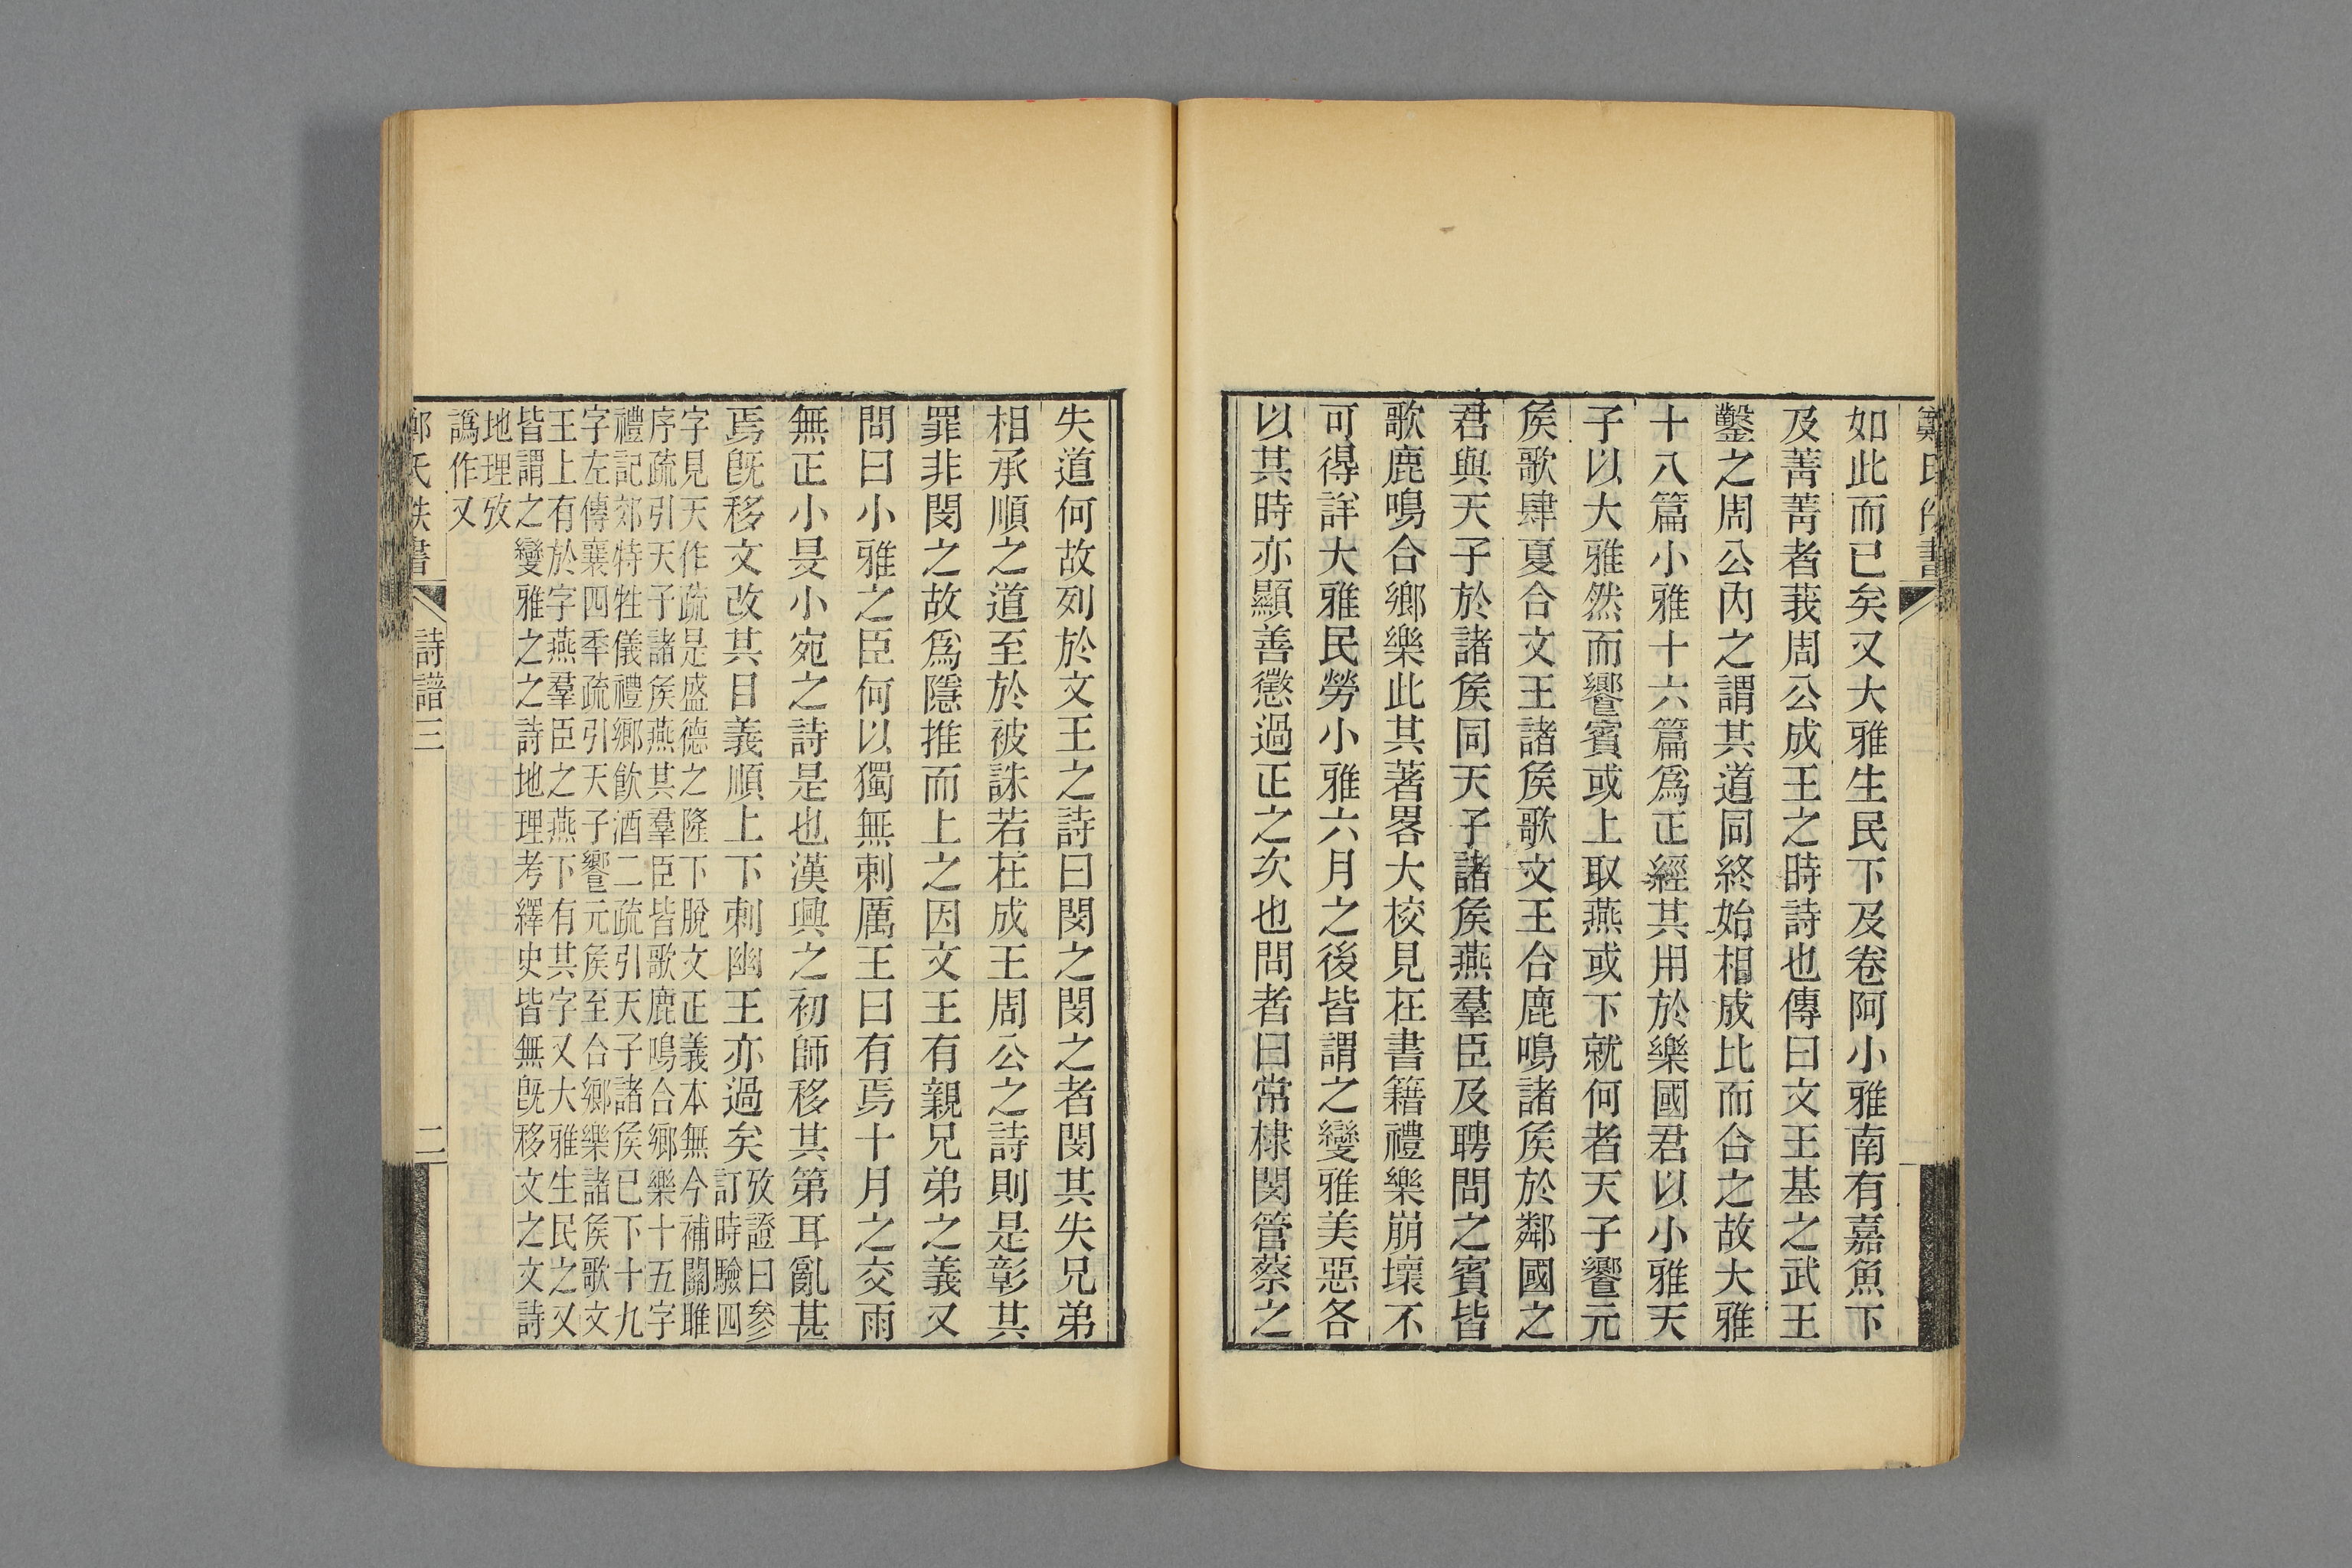 如此而已矣又大雅生民下及卷阿小雅南有嘉魚下
及菁菁者莪周公成王之時詩也傳曰文王基之武王
鑿之周公內之謂其道同終始相成比而合之故大雅
十八篇小雅十六篇爲正經其用於樂國君以小雅天
子以大雅然而饗賓或上取燕或下就何者天子饗元
矦歌肆夏合文王諸矦歌文王合鹿鳴諸矦於鄰國之
君與天子於諸矦同天子諸矦燕羣臣及聘問之賓皆
歌鹿鳴合鄉樂此其著畧大校見在書籍禮樂崩壞不
可得詳大雅民勞小雅六月之後皆謂之變雅美惡各
以其時亦顯善懲過正之次也問者曰常棣閔管蔡之
失道何故列於文王之詩曰閔之閔之者閔其失兄弟
相承順之道至於被誅若在成王周公之詩則是彰其
罪非閔之故爲隱推而上之因文王有親兄弟之義又
問曰小雅之臣何以獨無刺厲王曰有焉十月之交雨
無正小旻小宛之詩是也漢興之初師移其第耳亂甚
焉旣移文改其目義順上下刺幽王亦過矣
攷證曰參
訂時驗四
字見天作疏是盛德之隆下脫文正義本無今補關雎
序疏引天子諸矦燕其羣臣皆歌鹿鳴合鄉樂十五字
禮記郊特牲儀禮鄉飮酒二疏引天子諸矦已下十九
字左傳襄四季疏引天子饗元矦至合鄉樂諸矦歌文
王上有於字燕羣臣之燕下有其字又大雅生民之又
皆謂之變雅之之詩地理考繹史皆無旣移文之文詩
地理攷
譌作又
詩譜三
二